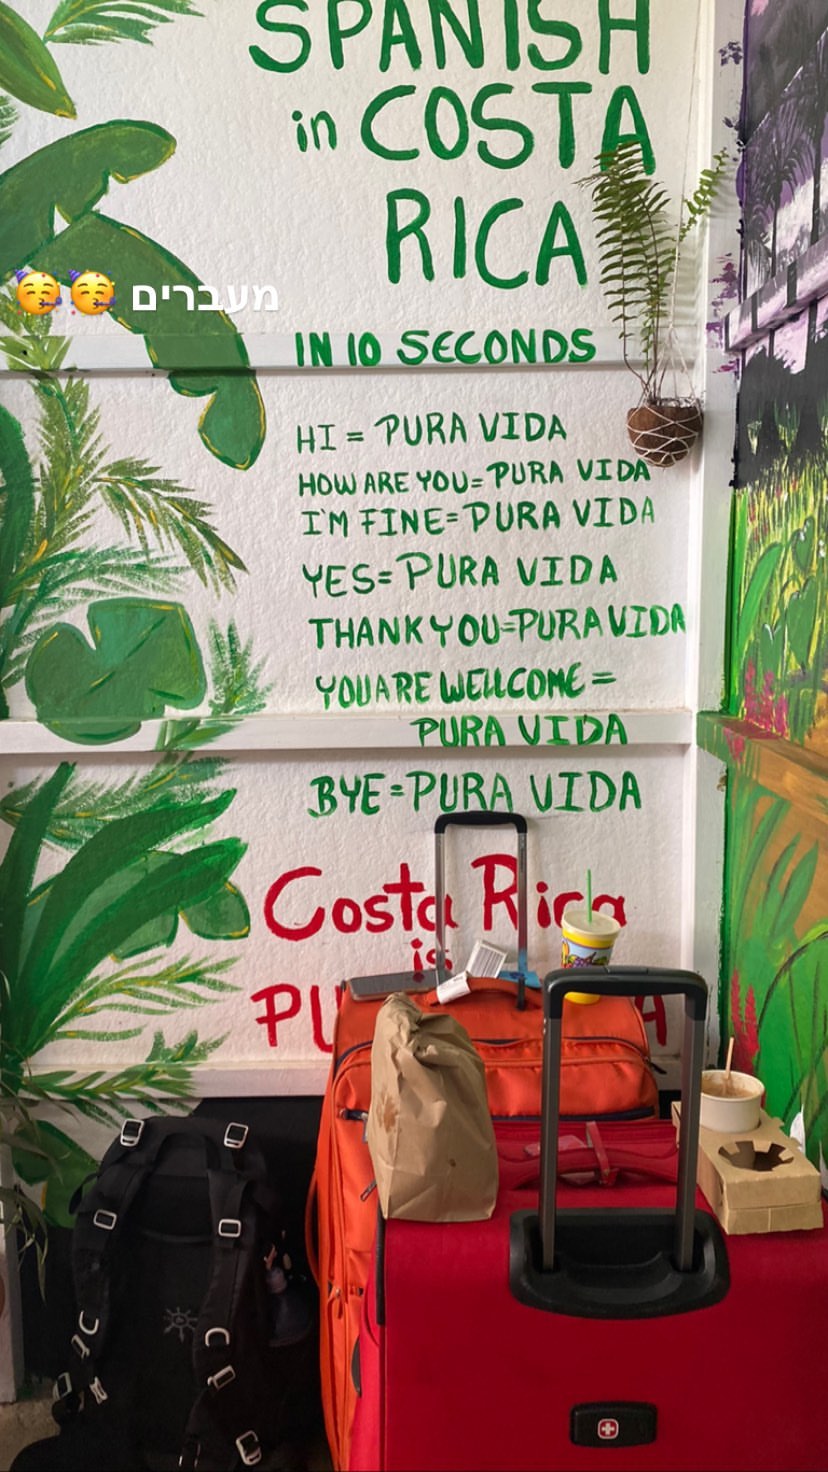 SPANISH
in COSTA
RICA
מעברים 🥳🥳
IN 10 SECONDS
HI = PURA VIDA
HOW ARE YOU = PURA VIDA
I'M FINE = PURA VIDA
YES = PURA VIDA
THANK YOU = PURA VIDA
YOU ARE WELLCOME =
PURA VIDA
BYE = PURA VIDA
Costa Rica
is